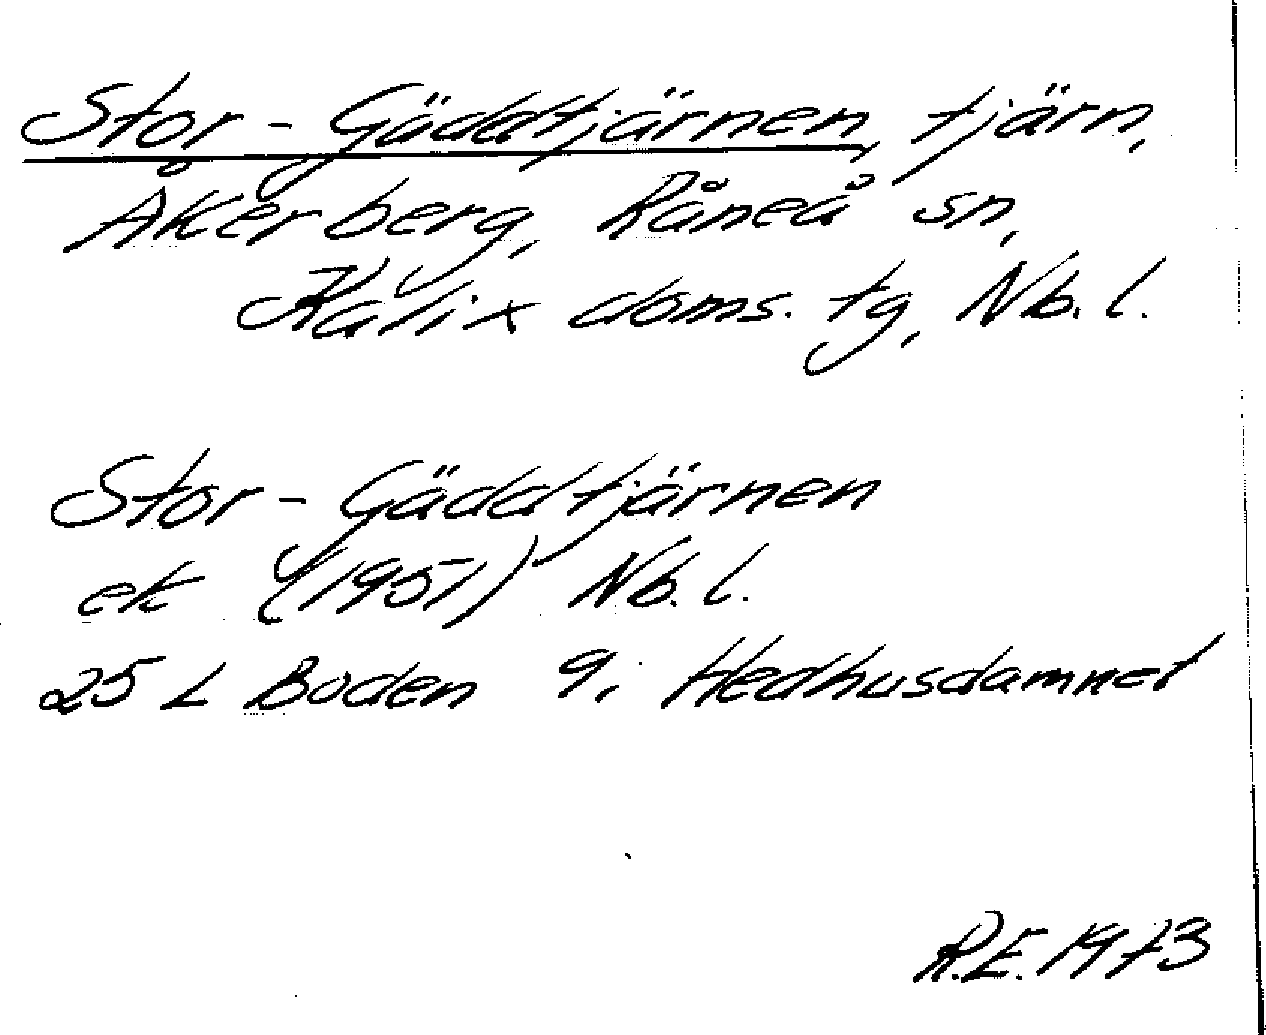 Stor-Gäddtjärnen, tjärn,
Åkerberg, Råneå sn,
Kalix doms. tg, Nb. l.
Stor-Gäddtjärnen
ek (1951) Nb. l.
25 L Boden 9i Hedhusdamnet
R.E. 1973